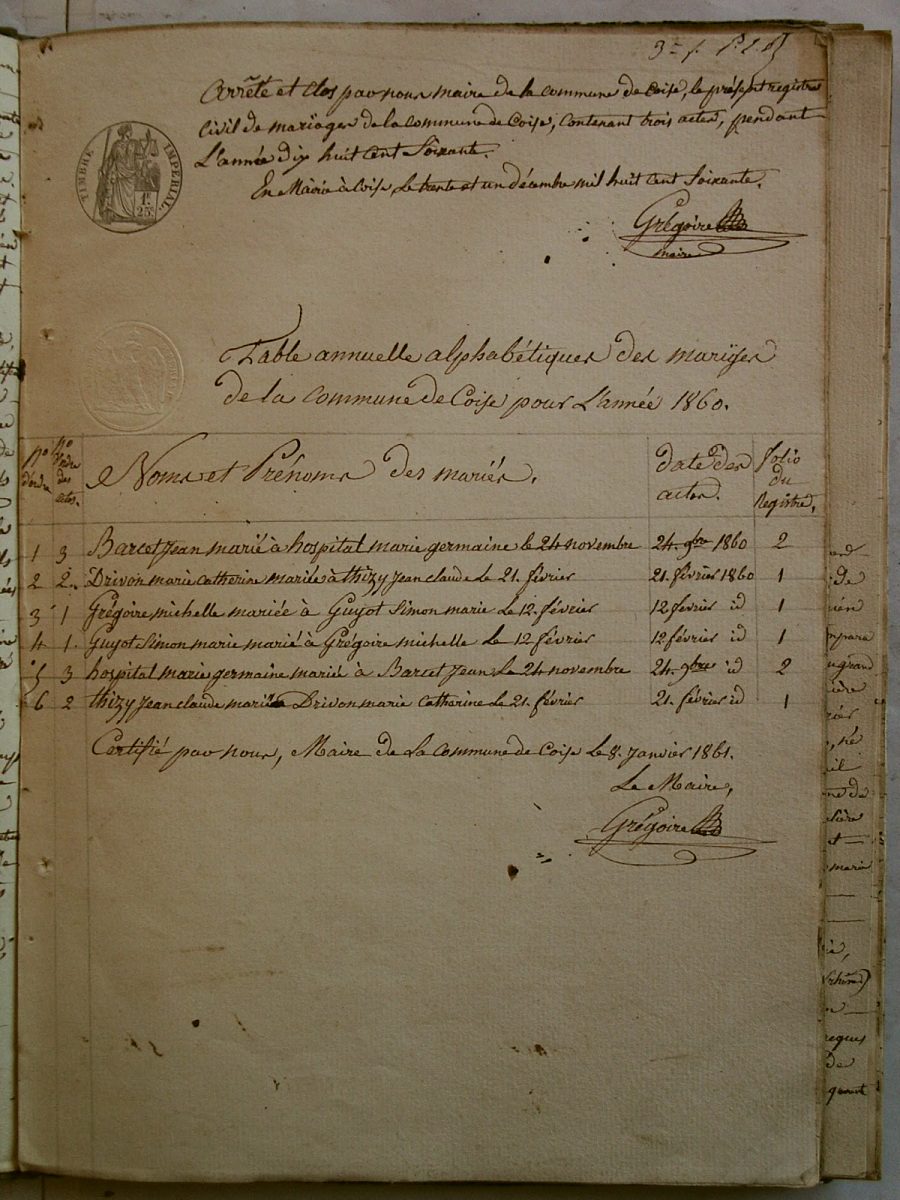 3e f.
Arrêté et Clos par nous maire de la commune de Coise, le présent registre
civil de mariages de la commune de Coise, contenant trois actes, pendant
L'année dix huit cent Soixante.
En Mairie à Coise, Le trente et un décembre mil huit cent Soixante.
TIMBRE IMPERIAL
1F.
25C.
Grégoire
maire
Table annuelle alphabétiques des mariages
de la commune de Coise pour L'année 1860.
No d'ordre
No d'ordre des actes.
Noms et Prénoms des mariés.
date des actes.
folio du Registre.
1 3 Barcet Jean marié à hospital marie germaine le 24 novembre 24 9bre 1860 2
2 2. Drivon marie Catherine mariée à thizy Jean claude Le 21. février 21. février 1860 1
3 1 Grégoire michelle mariée à Guyot Simon marie Le 12. février 12 février id 1
4 1. Guyot Simon marie marié à Grégoire michelle Le 12 février 12 février id 1
5 3 hospital marie germaine mariée à Barcet Jean Le 24 novembre 24. 9bre id 2
6 2 thizy Jean claude marié à Drivon marie Catherine Le 21. février 21. février id 1
Certifié par nous, Maire de La Commune de Coise Le 8. Janvier 1861.
Le Maire,
Grégoire